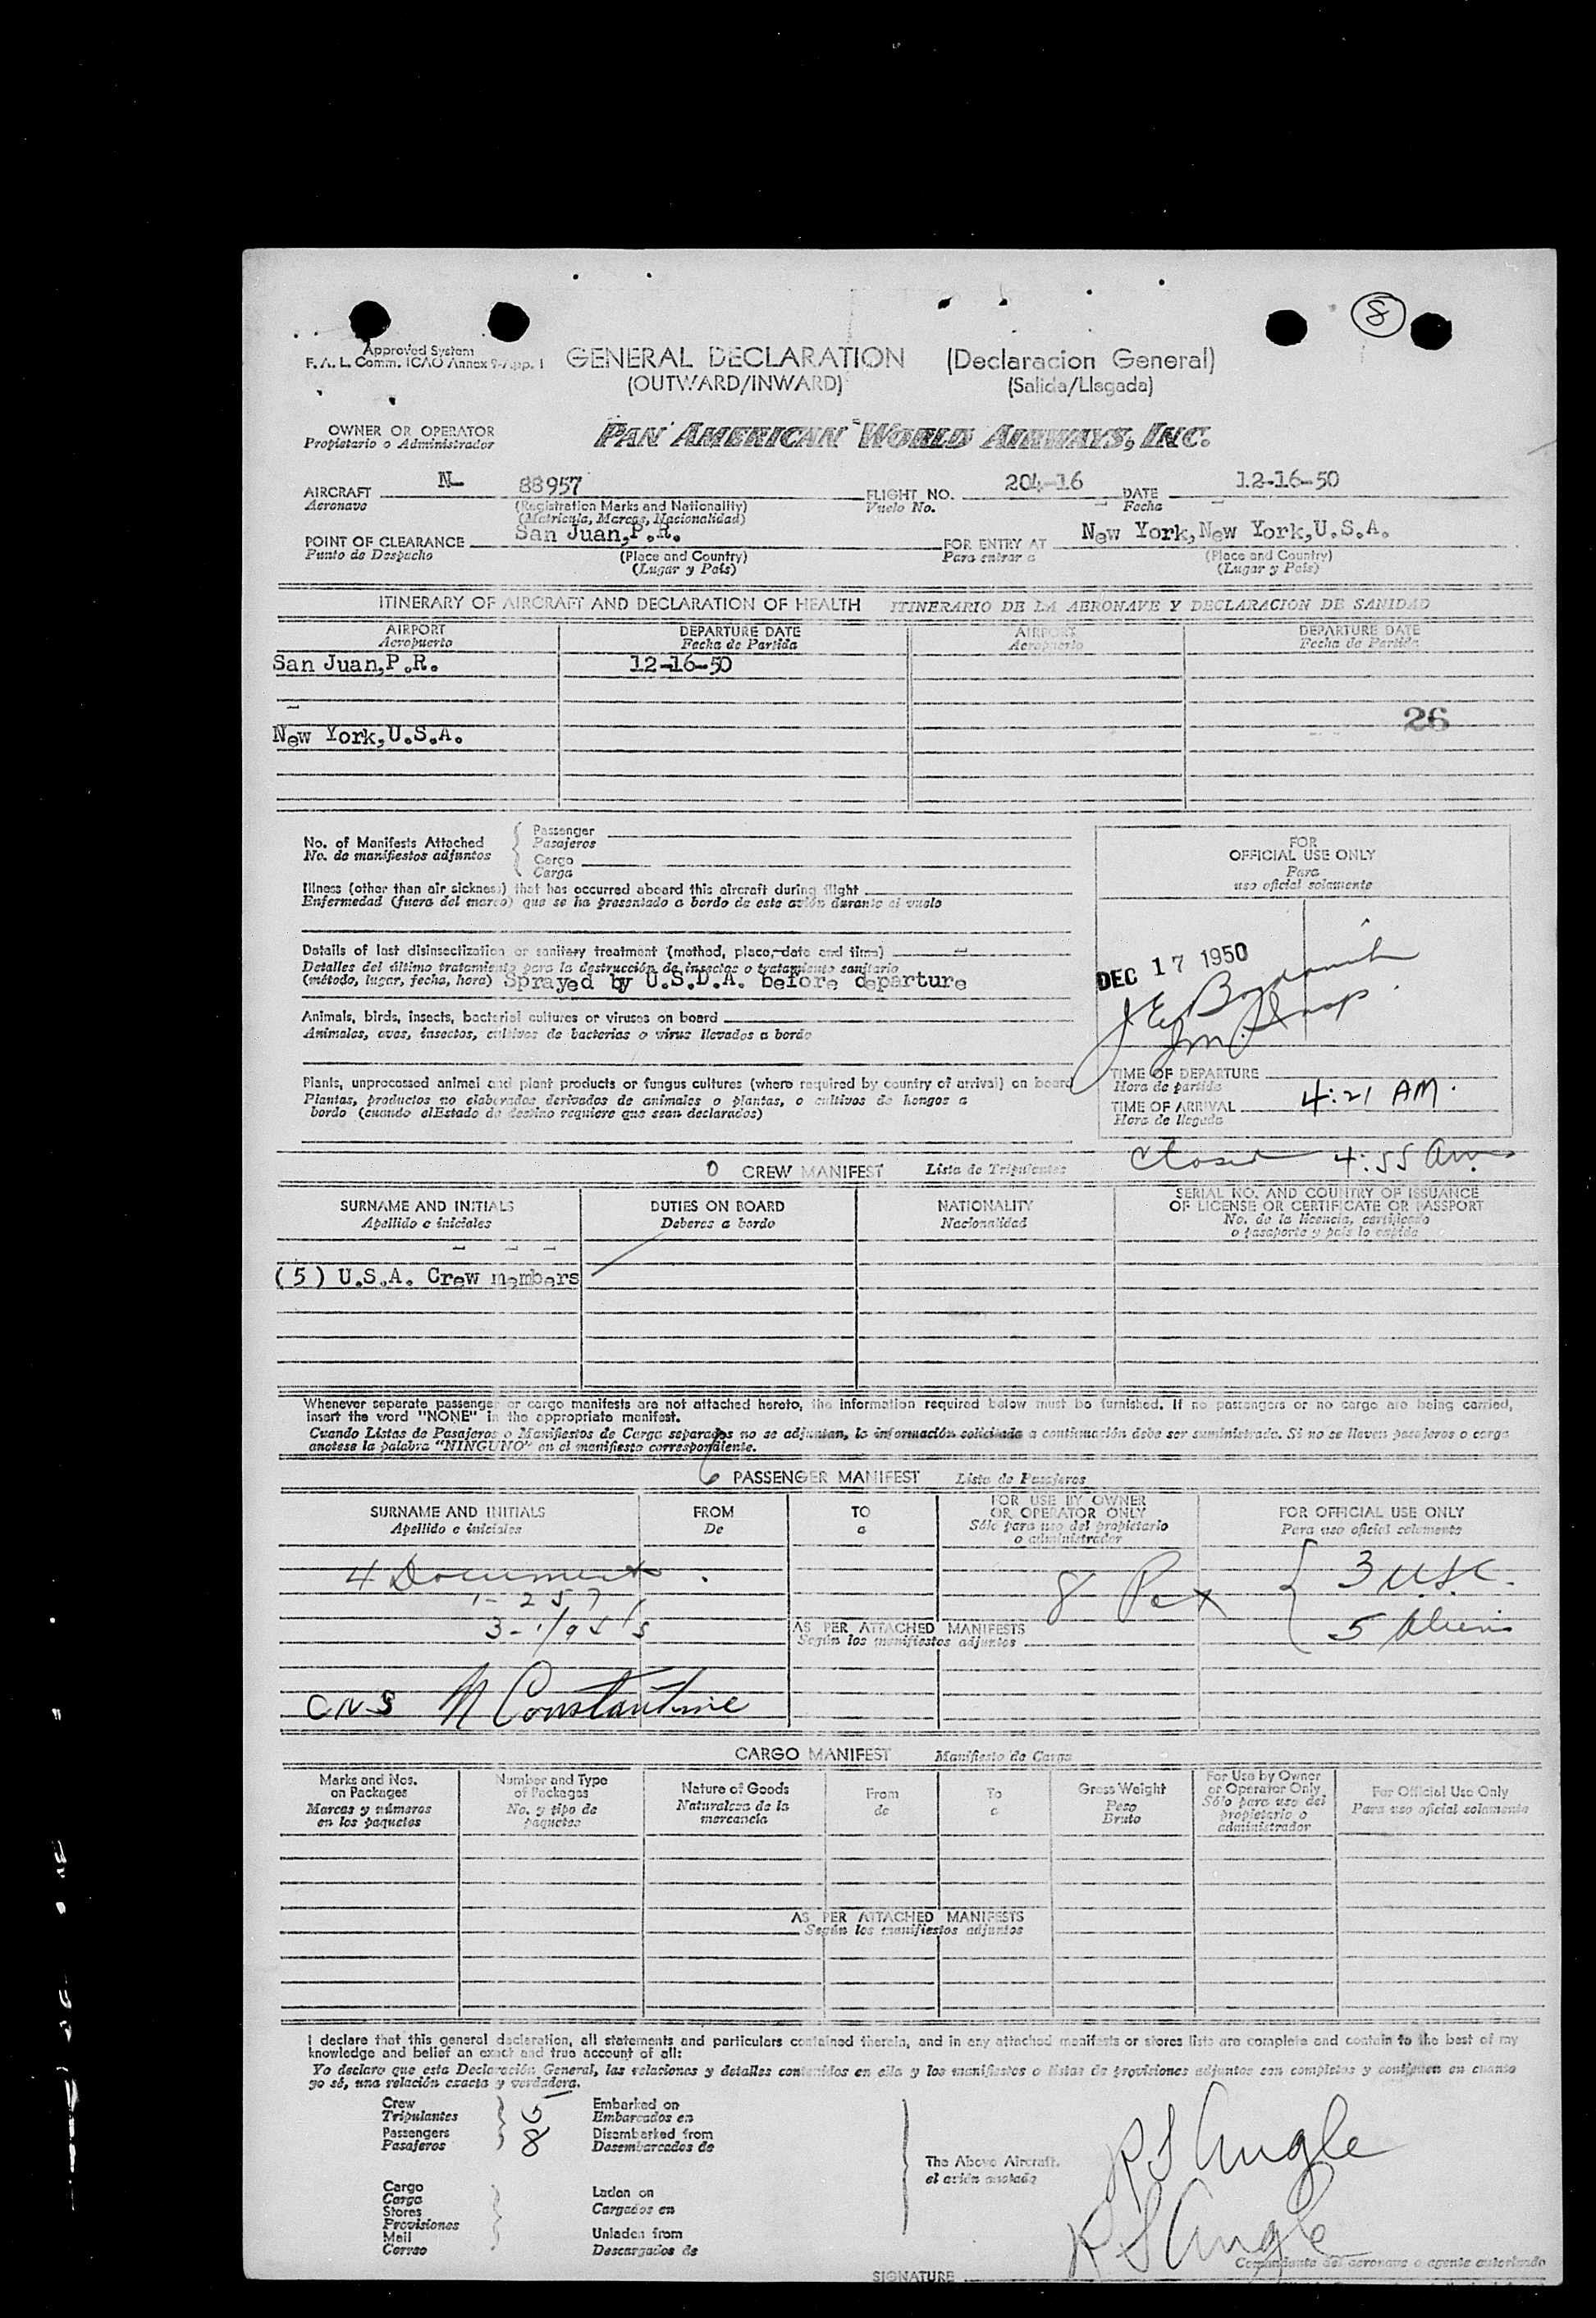 8
Approved System
F. A. L. Comm. ICAO Annex 9-App. 1
GENERAL DECLARATION (Declaracion General)
(OUTWARD/INWARD) (Salida/Llegada)
OWNER OR OPERATOR
Propietario o Administrador
PAN AMERICAN WORLD AIRWAYS, INC.
AIRCRAFT N- 88957 FLIGHT NO. 204-16 DATE 12-16-50
Aeronave (Registration Marks and Nationality) Vuelo No. Fecha
(Matricula, Marcas, Nacionalidad)
POINT OF CLEARANCE San Juan,P.R. FOR ENTRY AT New York,New York,U.S.A.
Punto de Despacho (Place and Country) Para entrar a (Place and Country)
(Lugar y País) (Lugar y País)
ITINERARY OF AIRCRAFT AND DECLARATION OF HEALTH ITINERARIO DE LA AERONAVE Y DECLARACION DE SANIDAD
AIRPORT DEPARTURE DATE AIRPORT DEPARTURE DATE
Aeropuerto Fecha de Partida Aeropuerto Fecha de Partida
San Juan,P.R. 12-16-50
26
New York,U.S.A.
No. of Manifests Attached
No. de manifiestos adjuntos
Passenger
Pasajeros
Cargo
Carga
FOR
OFFICIAL USE ONLY
Para
uso oficial solamente
Illness (other than air sickness) that has occurred aboard this aircraft during flight
Enfermedad (fuera del mareo) que se ha presentado a bordo de este avión durante el vuelo
Details of last disinsectization or sanitary treatment (method, place, date and time)
Detalles del último tratamiento para la destrucción de insectos o tratamiento sanitario
(método, lugar, fecha, hora) Sprayed by U.S.D.A. before departure
DEC 17 1950
Animals, birds, insects, bacterial cultures or viruses on board
Animales, aves, insectos, cultivos de bacterias o virus llevados a bordo
Plants, unprocessed animal and plant products or fungus cultures (where required by country of arrival) on board
Plantas, productos no elaborados derivados de animales o plantas, o cultivos de hongos a
bordo (cuando elEstado de destino requiere que sean declarados)
TIME OF DEPARTURE
Hora de partida
TIME OF ARRIVAL 4:21 AM.
Hora de llegada
Closed 4:55 Am
0 CREW MANIFEST Lista de Tripulantes
SURNAME AND INITIALS DUTIES ON BOARD NATIONALITY SERIAL NO. AND COUNTRY OF ISSUANCE
OF LICENSE OR CERTIFICATE OR PASSPORT
Apellido e iniciales Deberes a bordo Nacionalidad No. de la licencia, certificado
o pasaporte y país lo expide
(5) U.S.A. Crew members
Whenever separate passenger or cargo manifests are not attached hereto, the information required below must be furnished. If no passengers or no cargo are being carried,
insert the word "NONE" in the appropriate manifest.
Cuando Listas de Pasajeros o Manifiestos de Carga separados no se adjuntan, la información solicitada a continuación debe ser suministrada. Si no se lleven pasajeros o carga
anotese la palabra "NINGUNO" en el manifiesto correspondiente.
PASSENGER MANIFEST Lista de Pasajeros
SURNAME AND INITIALS FROM TO FOR USE BY OWNER
OR OPERATOR ONLY FOR OFFICIAL USE ONLY
Apellido e iniciales De a Sólo para uso del propietario
o administrador Para uso oficial solamente
4 Documents. 8 Pax 3 USC.
1-257
5 Aliens
3-I/95's
AS PER ATTACHED MANIFESTS
Según los manifiestos adjuntos
CNS N Constantine
CARGO MANIFEST Manifiesto de Carga
Marks and Nos.
on Packages
Marcas y números
en los paquetes
Number and Type
of Packages
No. y tipo de
paquetes
Nature of Goods
Naturaleza de la
mercancía
From
de
To
a
Gross Weight
Peso
Bruto
For Use by Owner
or Operator Only
Sólo para uso del
propietario o
administrador
For Official Use Only
Para uso oficial solamente
AS PER ATTACHED MANIFESTS
Según los manifiestos adjuntos
I declare that this general declaration, all statements and particulars contained therein, and in any attached manifests or stores lists are complete and contain to the best of my
knowledge and belief an exact and true account of all:
Yo declaro que esta Declaración General, las relaciones y detalles contenidos en ella y los manifiestos o listas de provisiones adjuntos son completos y contienen en cuanto
yo sé, una relación exacta y verdadera.
Crew 5
Tripulantes
Passengers 8
Pasajeros
Embarked on
Embarcados en
Disembarked from
Desembarcados de
Cargo
Carga
Stores
Provisiones
Mail
Correo
Laden on
Cargados en
Unladen from
Descargados de
The Above Aircraft.
el avión anotado
R S Angle
R S Angle
Comandante del aeronave o agente autorizado
SIGNATURE